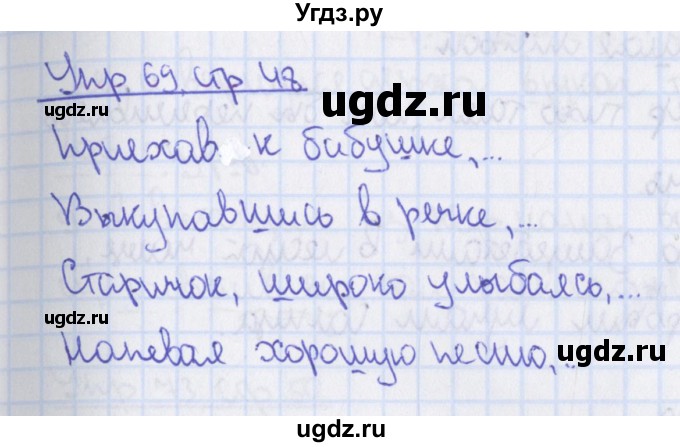 Угдз.ру
Упр. 69. стр 48
ugdz.ru
ugdz.ru
Приехав к бабушке,...
ugdz.ru
Выкупавшись в речке,...
Старичок, широко улыбаясь,...
ugdz.ru
ugdz.ru
Напевая хорошую песню,...
ugdz.ru